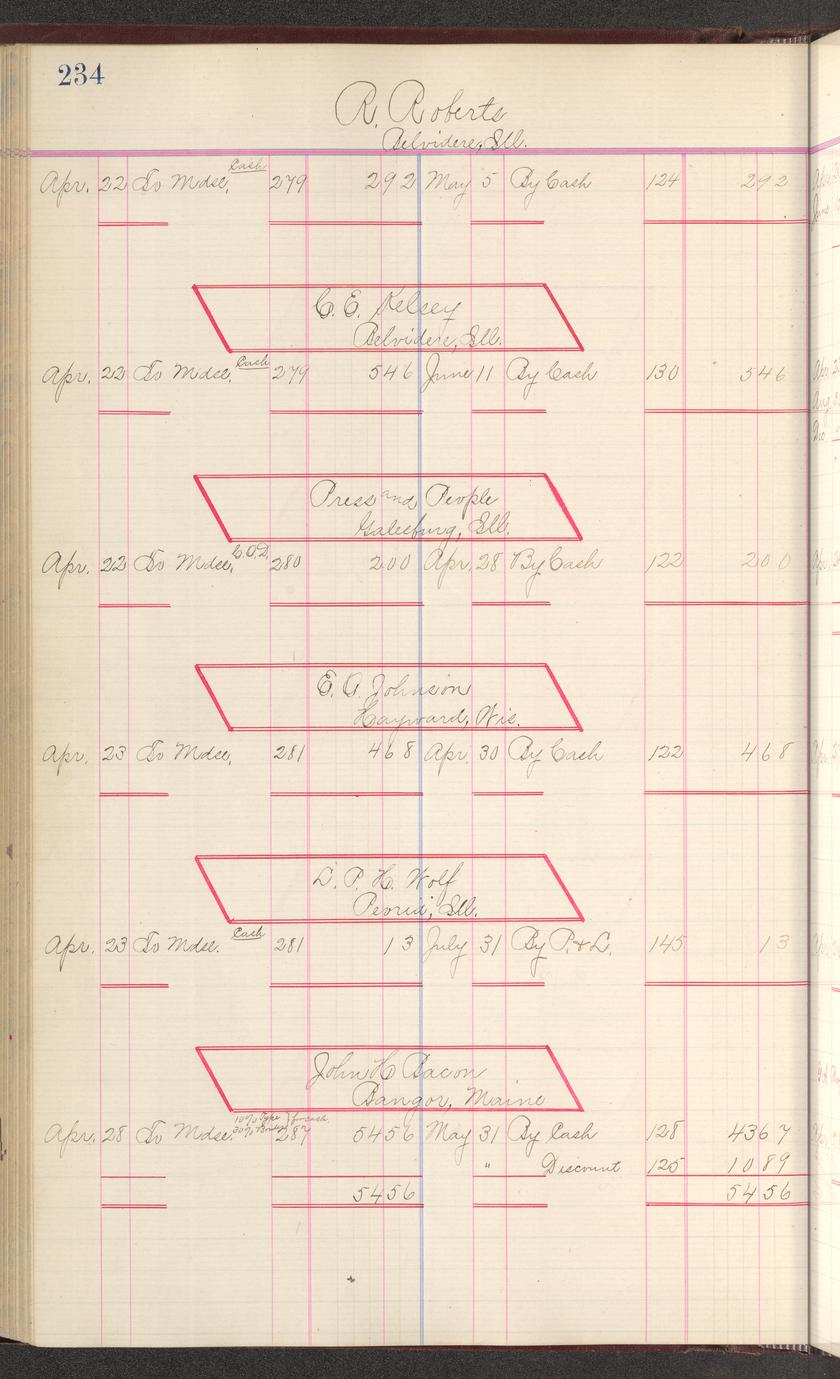 234
R. Roberts
Belvidere, Ill.
Apr. 22 To Mdse, Cash 279 292 May 5 By Cash 124 292
C. E. Kelsey
Belvidere, Ill.
Apr. 22 To Mdse, Cash 279 546 June 11 By Cash 130 546
Press and People
Galesburg, Ill.
Apr. 22 To Mdse, C.O.D. 280 200 Apr. 28 By Cash 122 200
E. A. Johnson
Hayward, Wis.
Apr. 23 To Mdse, 281 468 Apr. 30 By Cash 122 468
L. P. H. Wolf
Peoria, Ill.
Apr. 23 To Mdse. Cash 281 13 July 31 By P. & L. 145 13
John H Bacon
Bangor, Maine
10% Type
30% for cash
Apr. 28 To Mdse. 287 5456 May 31 By Cash 128 4367
" Discount 125 1089
5456 5456